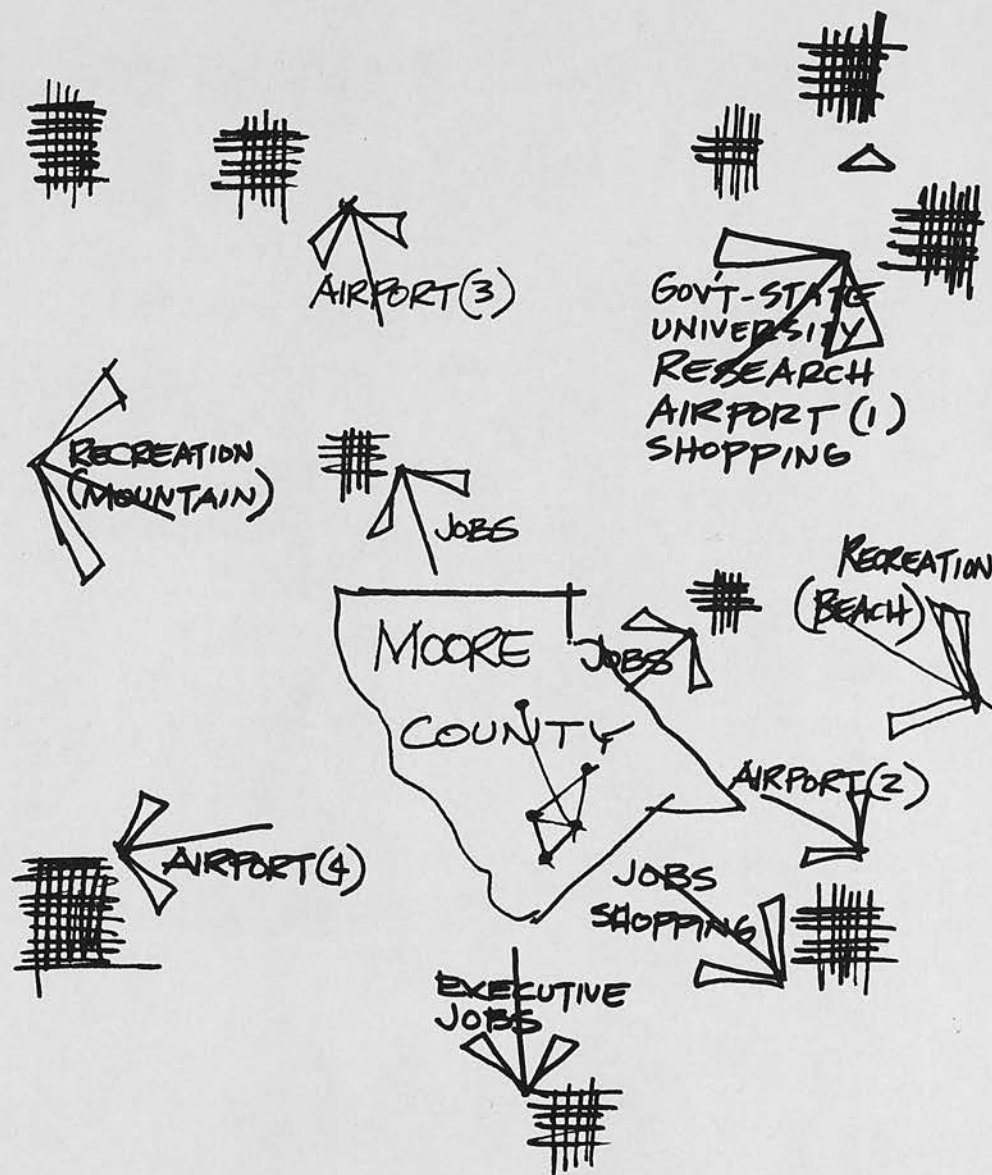 AIRPORT (3)
GOV'T-STATE
UNIVERSITY
RESEARCH
AIRPORT (1)
SHOPPING
RECREATION
(MOUNTAIN)
JOBS
RECREATION
(BEACH)
MOORE
COUNTY
JOBS
AIRPORT (2)
AIRPORT (4)
JOBS
SHOPPING
EXECUTIVE
JOBS